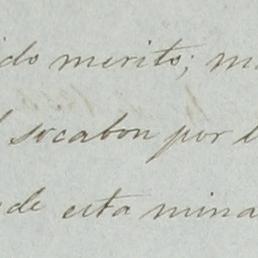 ido merito; m
l socabon por l
de esta mina